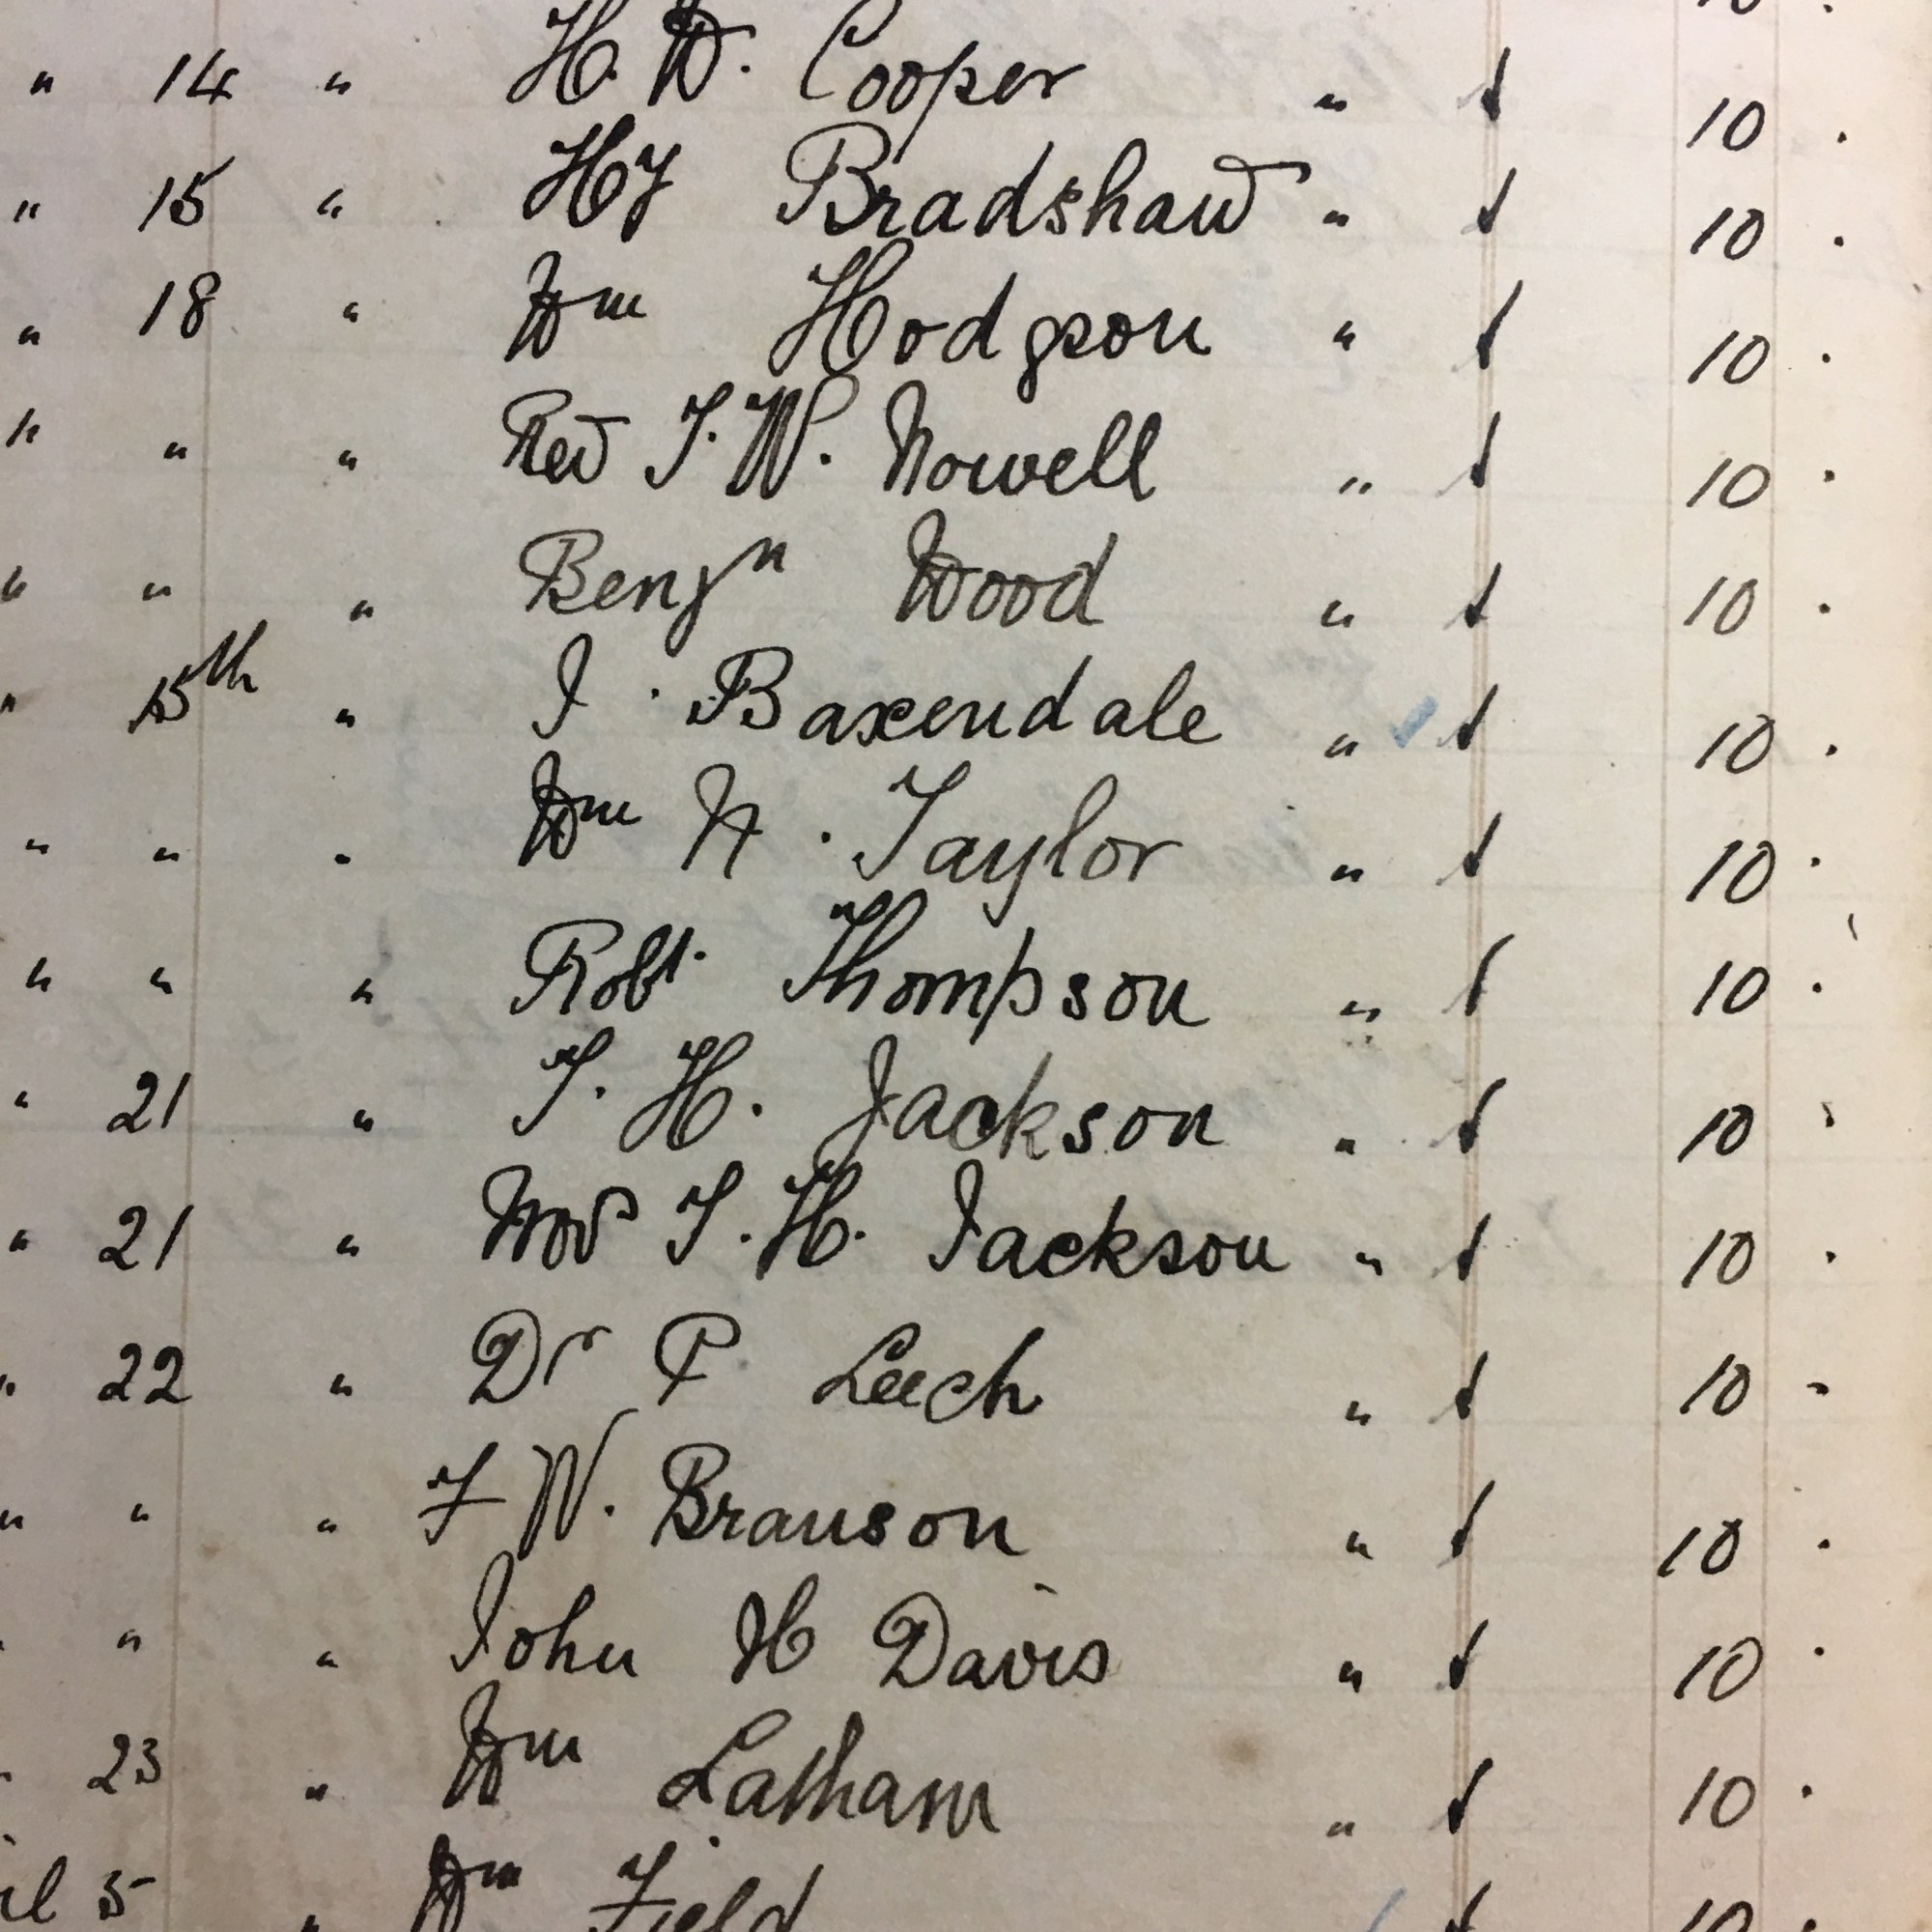 10 .
" 14 " H. W. Cooper " 10 .
" 15 " Hy Bradshaw " 10 .
" 18 " Wm Hodgson " 10 .
" " " Rev T. W. Nowell " 10 .
" " " Benjn Wood " 10 .
" 15th " J. Baxendale " 10 .
" " " Wm N. Taylor " 10 .
" " " Robt. Thompson " 10 .
" 21 " T. H. Jackson " 10 .
" 21 " Mrs T. H. Jackson " 10 .
" 22 " Dr P Leech " 10 -
" " " F W. Branson " 10 .
" " " John H Davis " 10 .
" 23 " Wm Latham " 10 .
il 5 " Wm Field 10